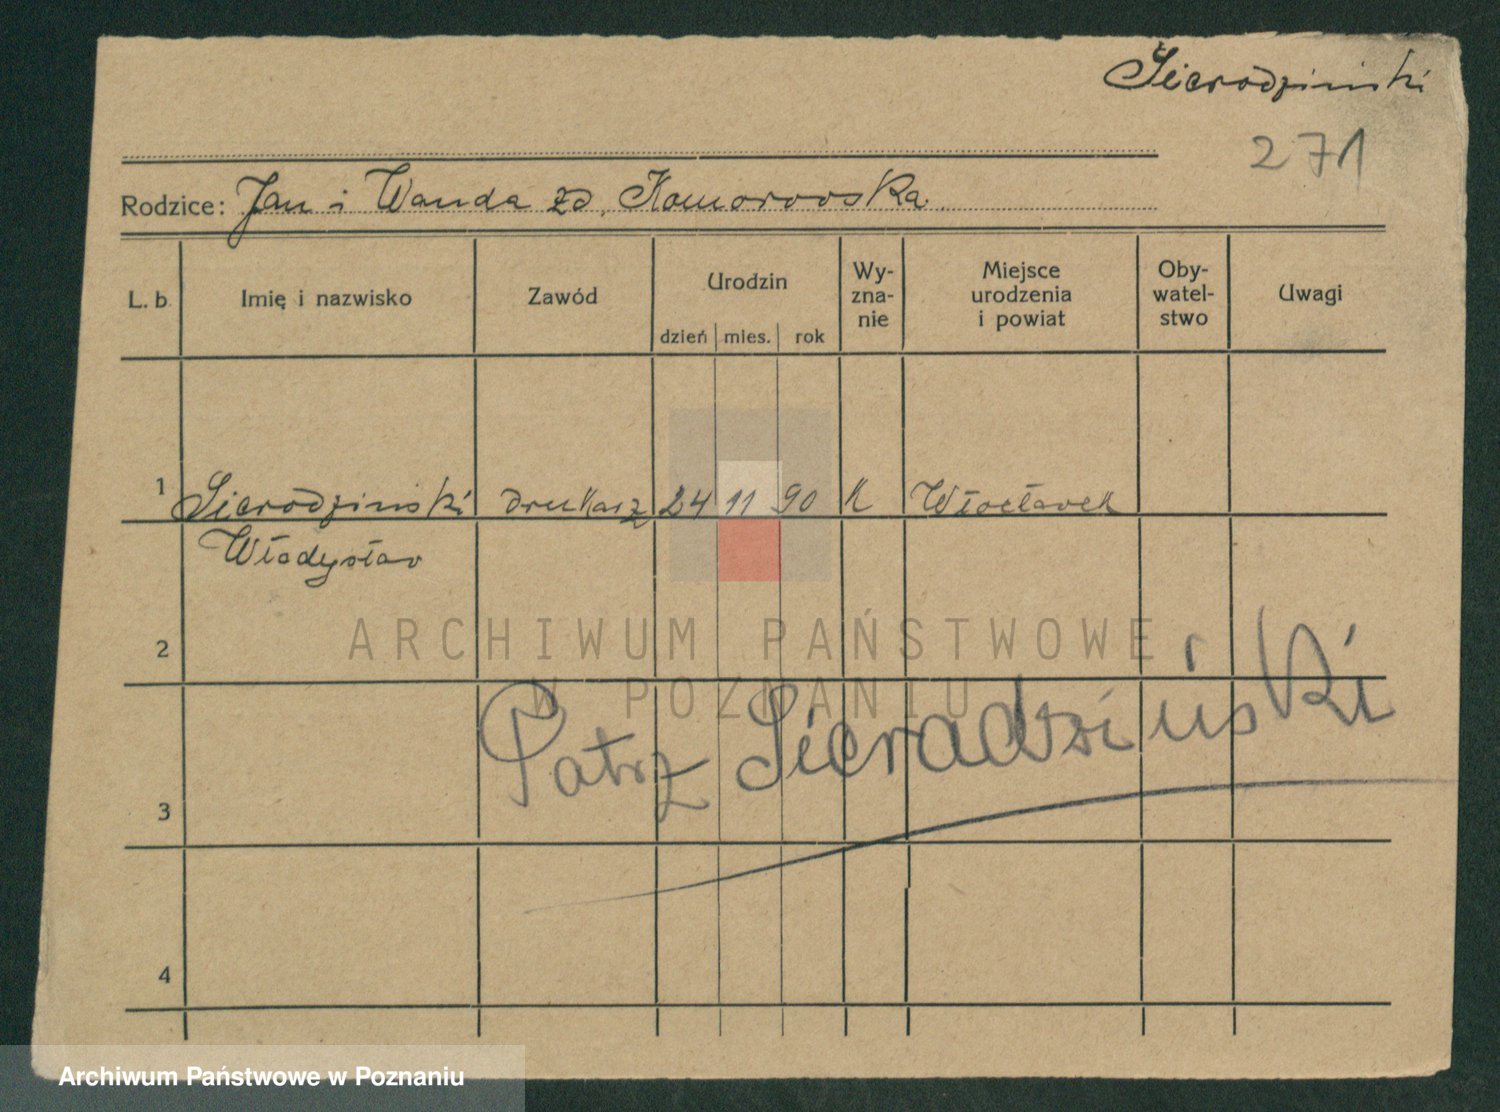 Sierodzinski
271
Rodzice: Jan i Wanda zd. Komorowska
L. b. Imię i nazwisko Zawód Urodzin Wyznanie Miejsce urodzenia i powiat Obywatelstwo Uwagi
dzień mies. rok
1 Sierodzinski drukarz 24 11 90 K Włocławek
Władysław
2
ARCHIWUM PAŃSTWOWE
W POZNANIU
Patrz Sieradziński
3
4
Archiwum Państwowe w Poznaniu